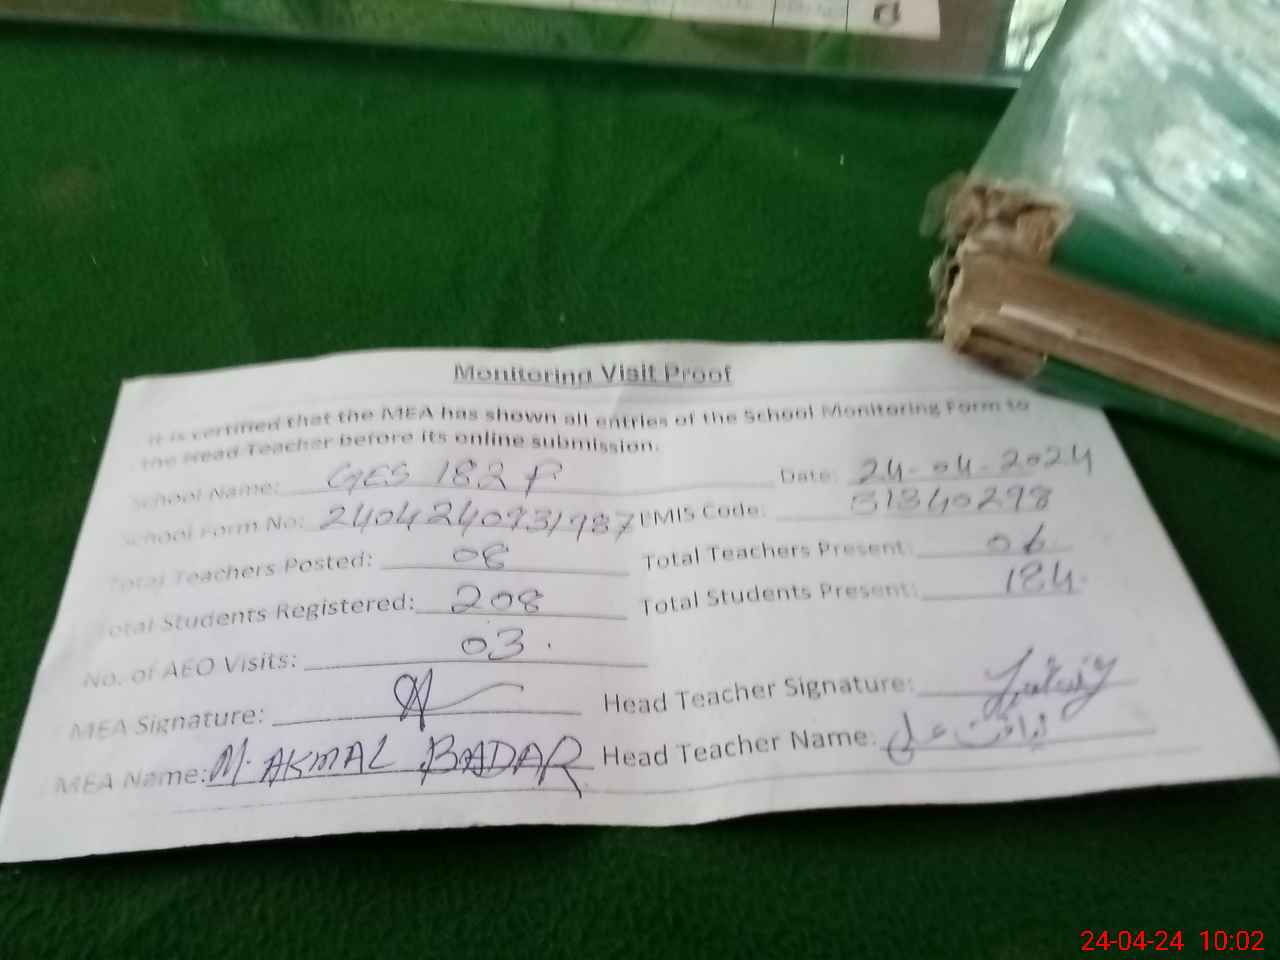 Monitoring Visit Proof
It is certified that the MEA has shown all entries of the School Monitoring Form to
the Head Teacher before its online submission.
School Name: GES 182 P Date: 24-04-2024
School Form No: 2404240931987 EMIS Code: 31340298
Total Teachers Posted: 08 Total Teachers Present: 06
Total Students Registered: 208 Total Students Present: 184
No. of AEO Visits: 03.
MEA Signature: Head Teacher Signature:
MEA Name: M. AKMAL BADAR Head Teacher Name: لیاقت علی
24-04-24 10:02